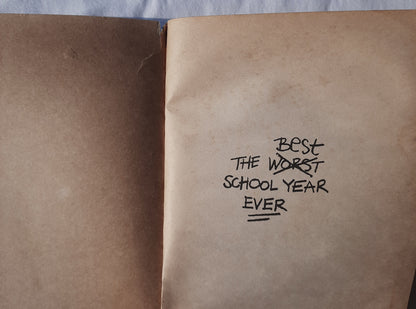 Best
THE WORST
SCHOOL YEAR
EVER